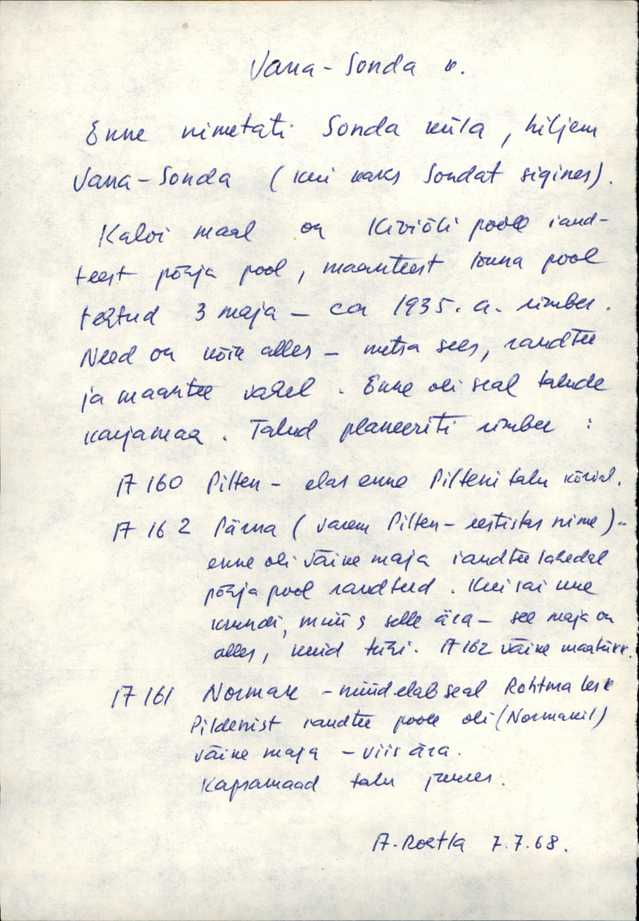 Vana-Sonda k.
Enne nimetati Sonda küla, hiljem
Vana-Sonda (kui kaks Sondat sigines).
Kalvi maal on Kiviõli poole raud-
teest põhja pool, maanteest lõuna pool
tehtud 3 maja - ca 1935. a. ümber.
Need on kõik alles - metsa sees, raudtee
ja maantee vahel. Enne oli seal talude
karjamaa. Talud planeeriti ümber :
A 160 Pilten - elas enne Pilteni talu kõrval.
A 162 Pärna (varem Pilten - eestistas nime) -
enne oli väike maja raudtee lähedal
põhja pool raudteed. Kui sai uue
krundi, müüs selle ära - see maja on
alles, kuid tühi. A 162 väike maatükk.
A 161 Normak - nüüd elab seal Rohtma lesk
Pildenist raudtee poole oli (Normakil)
väike maja - viis ära.
Kapsamaad talu juures.
7.7.68.